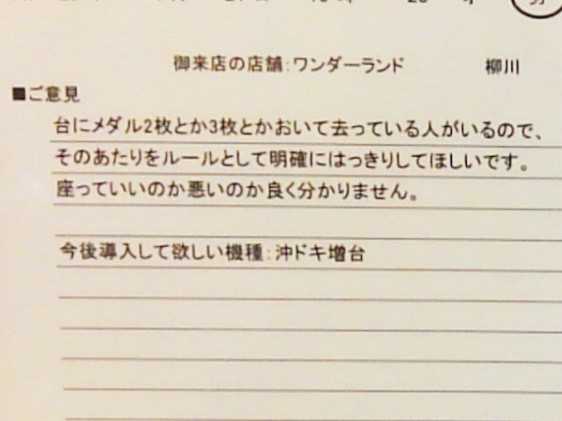 御来店の店舗:ワンダーランド 柳川
■ご意見
台にメダル2枚とか3枚とかおいて去っている人がいるので、
そのあたりをルールとして明確にはっきりしてほしいです。
座っていいのか悪いのか良く分かりません。
今後導入して欲しい機種:沖ドキ増台